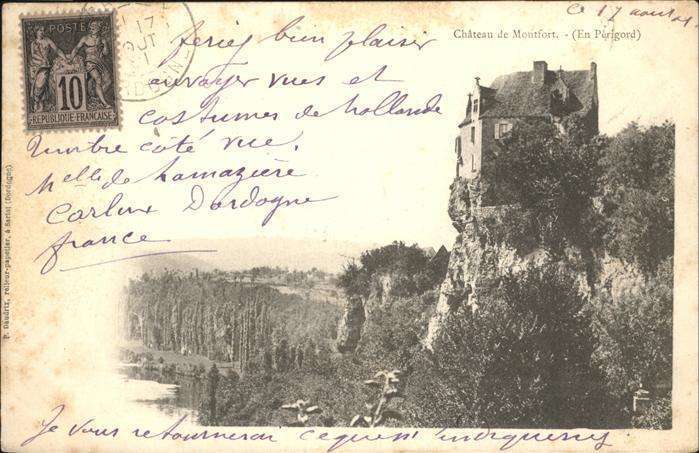 ce 17 août 01
Château de Montfort. - (En Périgord)
POSTES
10
RÉPUBLIQUE FRANÇAISE
17
AOUT
DORDOGNE
feriez bien plaisir
envoyer vues et
costumes de hollande
timbre côté vue.
Melle de Lamazière
Carlux Dordogne
france
P. Daudrix, relieur-papetier, à Sarlat (Dordogne)
Je vous retournerai ce que m'indiquerez